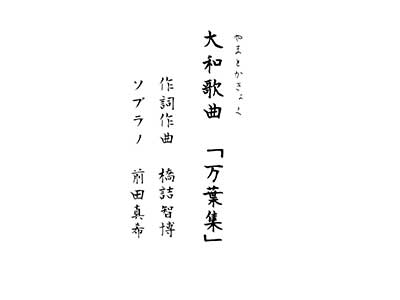 やまとかきょく
大和歌曲 「万葉集」
作詞作曲 橋詰智博
ソプラノ 前田真希